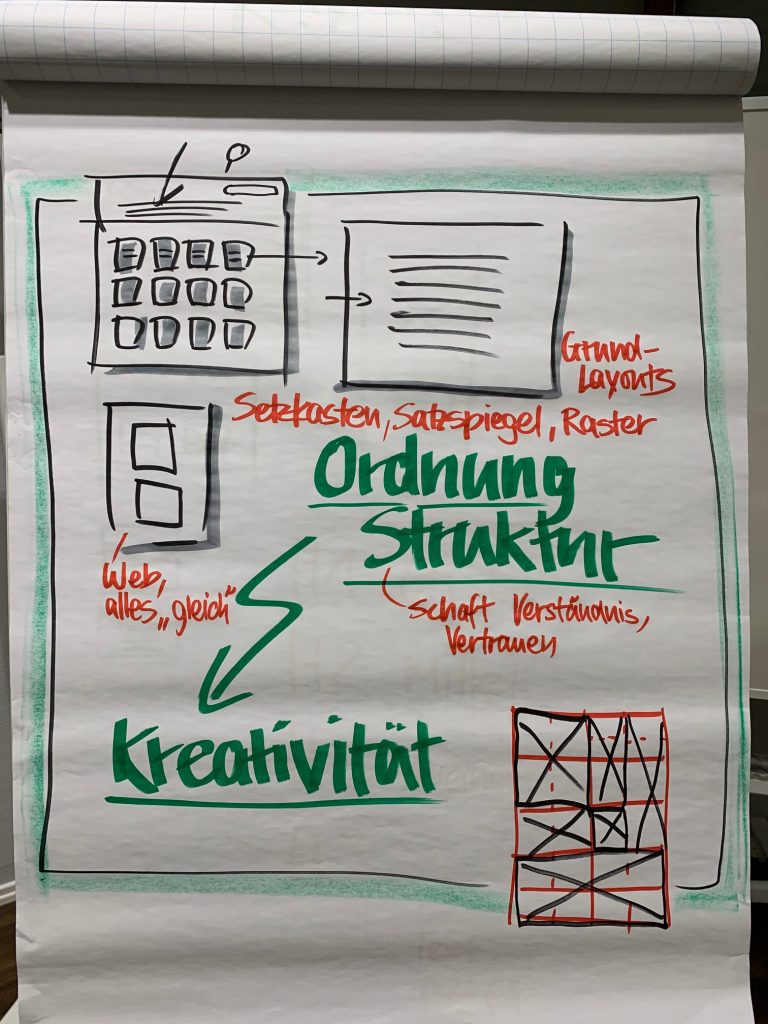 Grund-
Layouts
Setzkasten, Satzspiegel, Raster
Ordnung
Struktur
Web,
alles „gleich“
schaft Verständnis,
Vertrauen
Kreativität